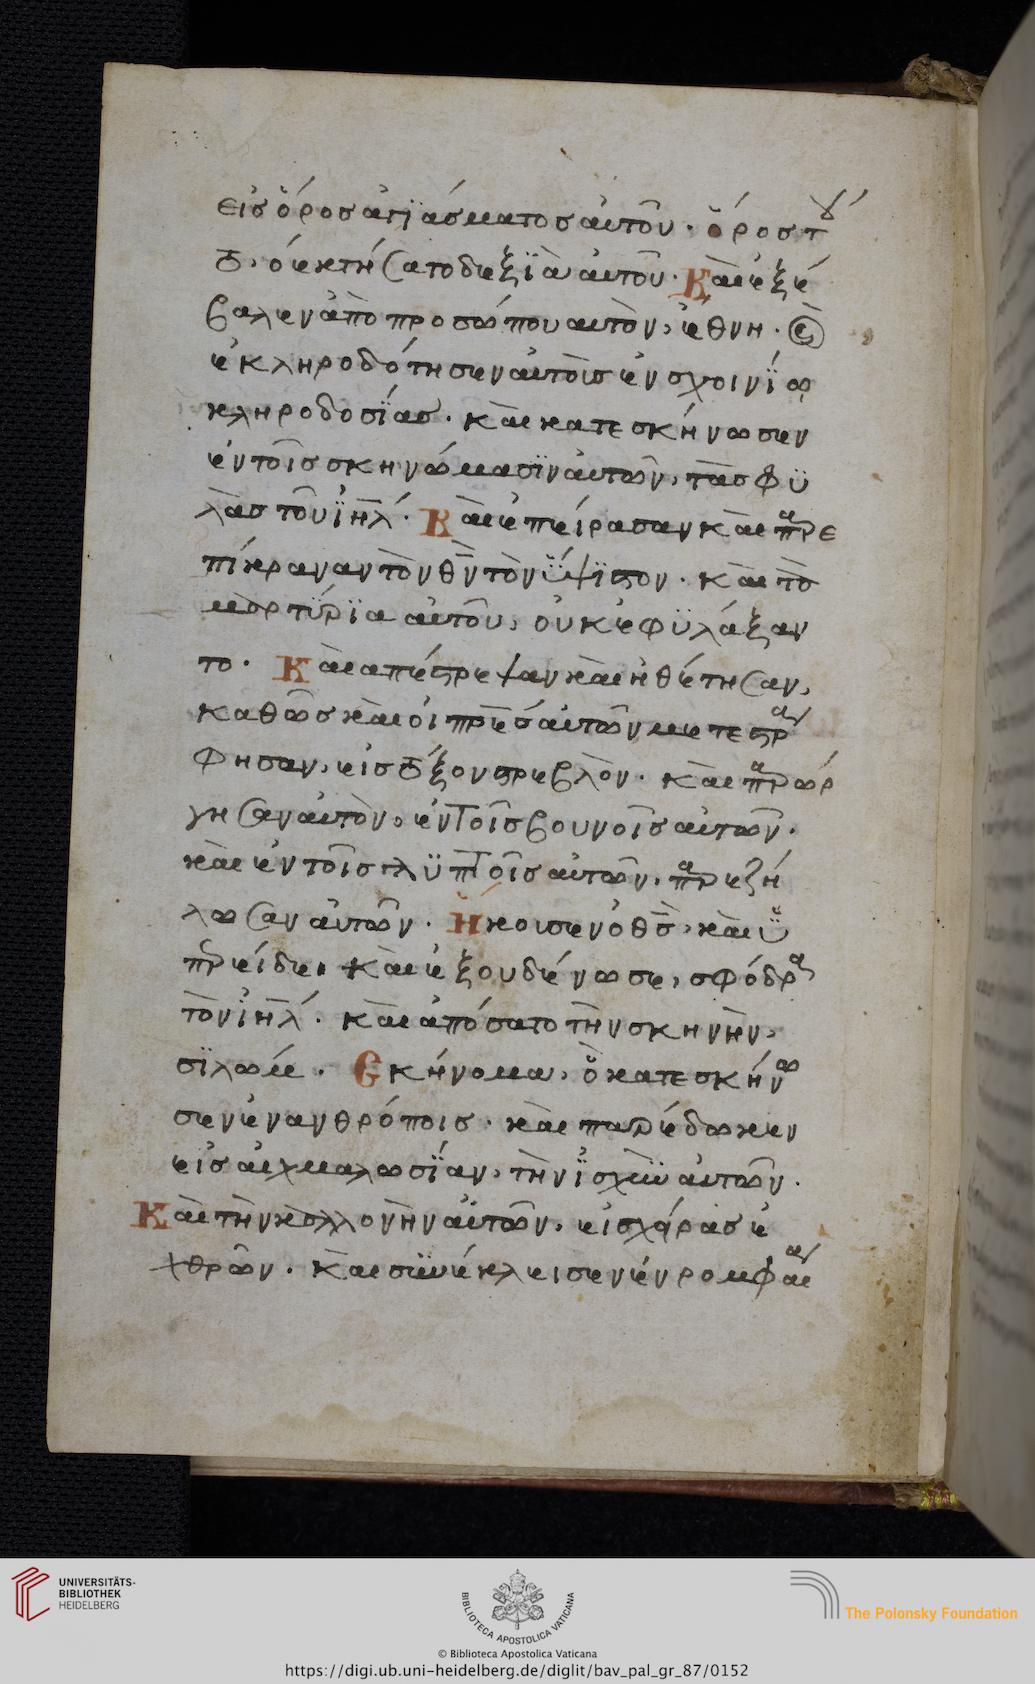 εἰσ ὄροσ ἁγϊάσματοσ αὐτοῦ · ὄροσ τοῦ
το, ὁ ἐκτήσατο δεξϊὰ αὐτοῦ · Καὶ ἐξέ
βαλεν ἀπὸ προσώπου αυτὸν, ἔθνη · καὶ
ἐκληροδότησεν ἀυτοῖσ ἐν σχοινΐω
κληροδοσΐασ · καὶ κατεσκήνωσεν
ἐν τοῖσ σκηνώμασϊν ἀυτῶν, τὰσ φϋ
λὰσ τοῦ ἰηλ · Καὶ ἐπείρασαν καὶ παρε
πίκραναν τὸν θν τὸν ὕψϊστον · καὶ τὰ
μαρτύρϊα αὐτοῦ, οὐκ ἐφϋλάξαν
το · Καὶ απέστρεψαν καὶ ἠθέτησαν,
καθῶσ καὶ οἱ πρεσ ἀυτῶν μετεστρα
φησαν, εἰσ τόξον στρεβλὸν · καὶ παρώρ
γησαν ἀυτὸν, ἐν τοῖσ βουνοῖσ αὐτῶν ·
καὶ ἐν τοῖσ γλϋπτοῖσ αὐτῶν, παρεζή
λωσαν ἀυτῶν · Ἤκουσεν ὁ θσ, καὶ ϋ
περείδε, καὶ ἐξουδένωσε, σφόδρα
τὸν ἰηλ · καὶ ἀπόσατο τὴν σκηνὴν,
σϊλωμ · Σκήνομα, ὃ κατεσκήνω
σεν ἐν ανθρόποισ · καὶ παρέδωκεν
εἰσ ἀιχμαλωσΐαν, τὴν ἰσχὺν ἀυτῶν ·
Καὶ τὴν καλλονὴν ἀυτῶν, εἰσ χάρασ ἐ
χθρῶν · Καὶ συνέκλεισεν ἐν ρομφαία
UNIVERSITÄTS-
BIBLIOTHEK
HEIDELBERG
BIBLIOTECA APOSTOLICA VATICANA
The Polonsky Foundation
© Biblioteca Apostolica Vaticana
https://digi.ub.uni-heidelberg.de/diglit/bav_pal_gr_87/0152